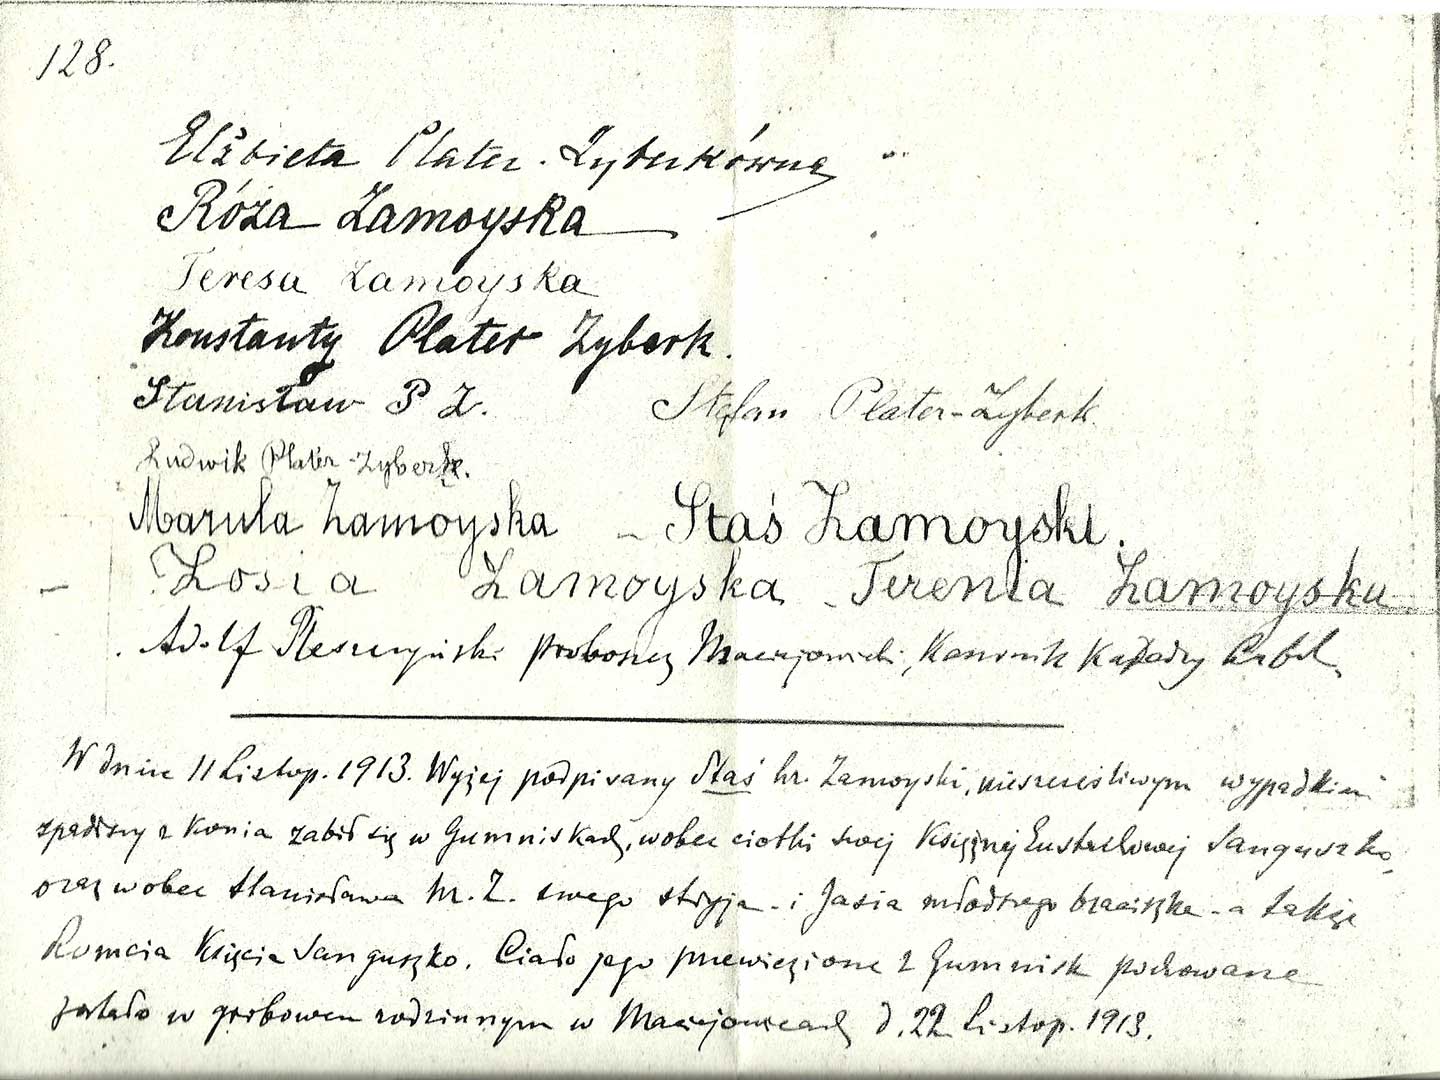 128.
Elżbieta Plater-Zyberkówna
Róża Zamoyska
Teresa Zamoyska
Konstanty Plater Zyberk.
Stanisław P Z. Stefan Plater-Zyberk
Ludwik Plater-Zyberk.
Marula Zamoyska – Staś Zamoyski.
Zosia Zamoyska – Terenia Zamoyska
Adolf Pleszczyński proboszcz Maciejowicki, Kanonik Katedry Lubel.
W dniu 11 Listop. 1913. Wyżej podpisany Staś hr. Zamoyski, nieszczęśliwym wypadkiem
spadłszy z konia zabił się w Gumniskach, wobec ciotki swej Księżnej Eustachowej Sanguszko,
oraz wobec Stanisława hr. Z. swego stryja - i Jasia młodszego braciszka - a także
Romcia Księcia Sanguszko. Ciało jego przewiezione z Gumnisk pochowane
zostało w grobowcu rodzinnym w Maciejowicach d. 22 Listop. 1913.